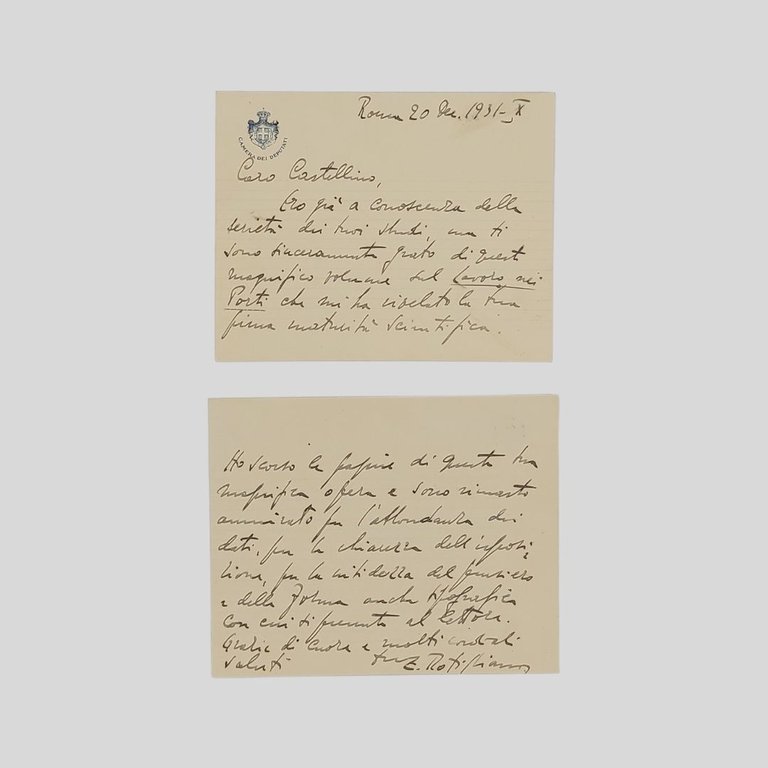 Roma 20 Dic. 1931-X
CAMERA DEI DEPUTATI
Caro Castellino,
Ero già a conoscenza della
serietà dei tuoi studi, ma ti
sono sinceramente grato di questo
magnifico volume sul Lavoro nei
Porti che mi ha rivelato la tua
piena maturità scientifica.
Ho scorso le pagine di questa tua
magnifica opera e sono rimasto
ammirato per l'abbondanza dei
dati, per la chiarezza dell'esposi=
zione, per la nitidezza del pensiero
e della forma anche tipografica
con cui si presenta al lettore.
Grazie di cuore e molti cordiali
saluti
tuo E.